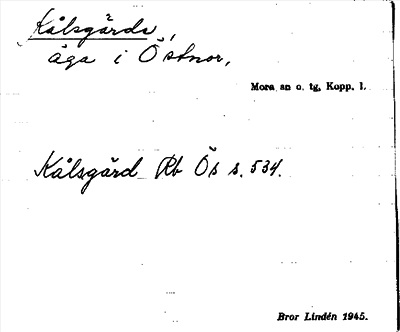 Kålsgårda,
äga i Östnor,
Mora sn o. tg, Kopp. l.
Kålsgård Rb Ös s. 534.
Bror Lindén 1945.